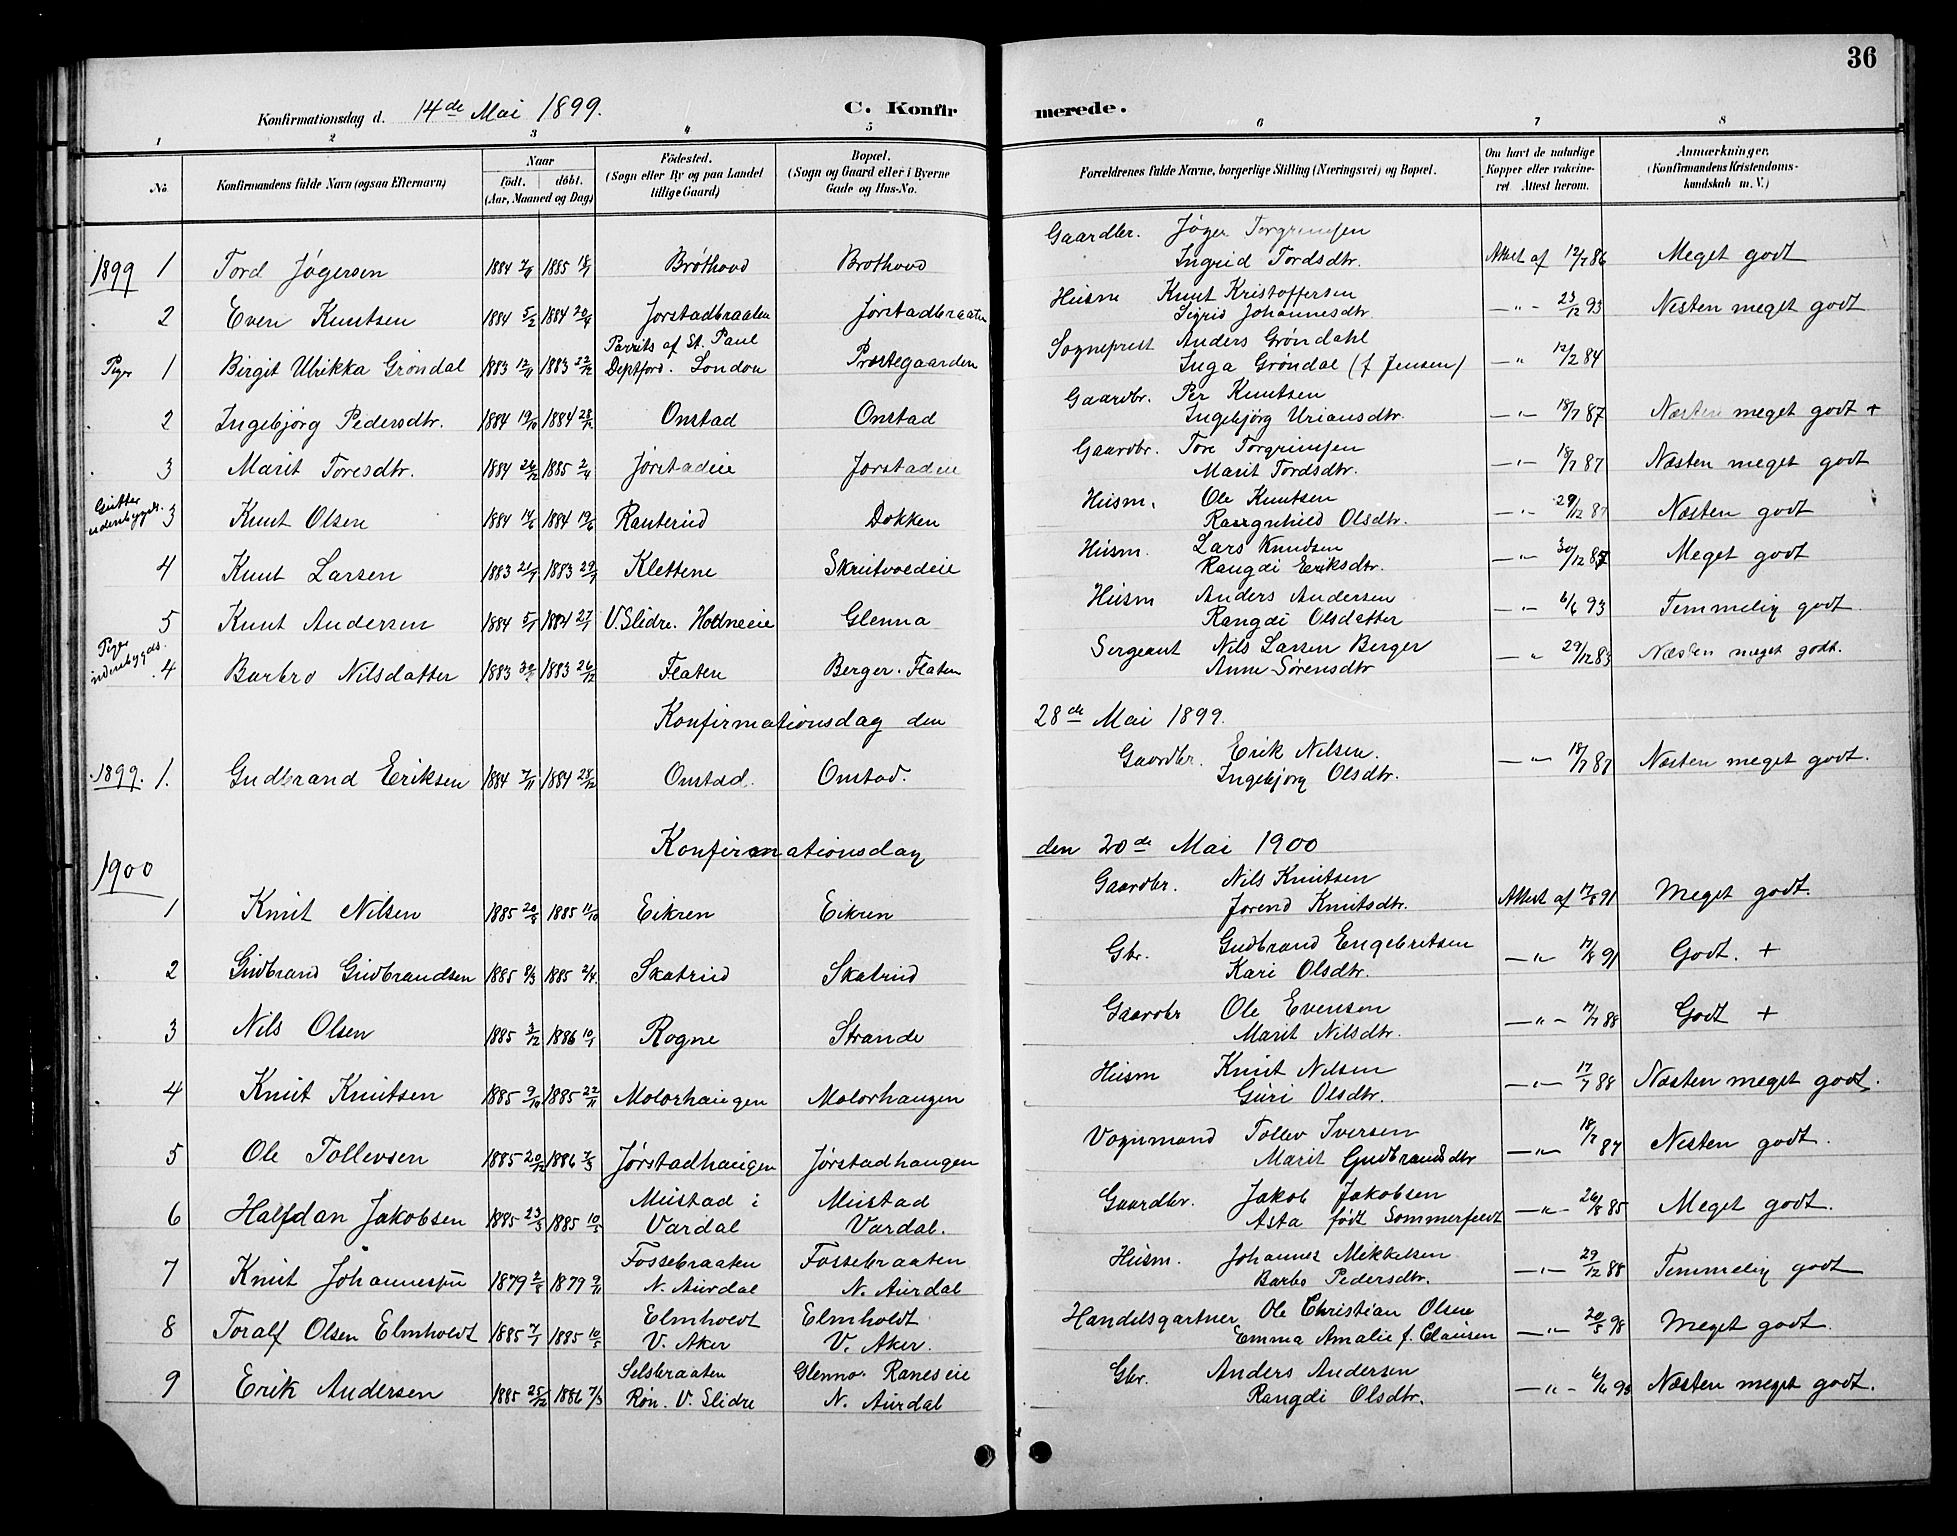 36
Konfirmationsdag d. 14de Mai 1899. C. Konfirmerede.
1 2 3 4 5 6 7 8
No Konfirmandens fulde Navn (ogsaa Efternavn) Naar födt. döbt. (Aar, Maaned og Dag) Födested. (Sogn eller By og paa Landet tillige Gaard) Bopæl. (Sogn og Gaard eller i Byerne Gade og Hus-No. Forældrenes fulde Navne, borgerlige Stilling (Næringsvei) og Bopæl. Om havt de naturlige Kopper eller vakcineret. Attest herom. Anmærkninger. (Konfirmandens Kristendomskundskab m. V.)
1899 1 Tord Jøgersen 1884 7/11 1885 18/1 Brøthovd Brothovd Gaardbr. Jøger Torgrimsen Ingrid Tordsdtr. Attest af 12/7 86 Meget godt
2 Even Knutsen 1884 5/2 1884 20/4 Jorstadbraaten Jørstadbraaten Husm Knut Kristoffersen Sigrid Johannesdtr. —„— 23/12 93 Nesten meget godt
Piger 1 Birgit Ulrikka Grøndal 1883 12/11 1883 22/12 Parrits af St. Paul Deptford. London Præstegaarden Sogneprest Anders Grøndahl Inga Grøndal (f Jensen) —„ 12/2 84
2 Ingebjørg Pedersdtr. 1884 19/10 1884 Onstad Onstad Gaardbr. Per Knutsen Ingebjörg Uriansdtr. —„— 18/7 87 Næsten meget godt +
3 Marit Toresdtr. 1884 26/12 1885 2/4 Jørstadeie Jorstadeie Gaardbr. Tore Torgrimsen Marit Tordsdtr. —„— 18/7 87 Næsten meget godt
Gutter udenbygds. 3 Knut Olsen 1884 1884 19/6 Ranterud Dokken Husm. Ole Knutsen Raagnhild Olsdtr. —„— 29/12 87 Næsten godt
4 Knut Larsen 1883 1883 Klettene Skrutvoldeie Husm. Lars Knudsen Rangdi Eriksdtr. —„ 30/12 87 Meget godt
5 Knut Andersen 1884 5/1 1884 27/1 V. Slidre. Glenna Husm Anders Andersen Rangdi Olsdatter —„— 6/6 93 Temmelig godt
Piger udenbygds. 4 Barbro Nilsdatter 1883 1883 26/12 Flaten Berger. Flaten Sergeant Nils Larsen Berger Anne Sørensdtr —„ 29/12 83 Næsten meget godt.
Konfirmationsdag den 28de Mai 1899.
1899. 1. Gudbrand Eriksen 1884 7/11 1884 25/12 Onstad. Onstad. Gaardbr. Erik Nilsen. Ingebjorg Olsdtr. —„— 18/7 87 Næsten meget godt.
Konfirmationsdag den 20de Mai 1900
1900
1 Knut Nilsen 1885 20/8 1885 11/10 Eikren Eikren Gaardbr. Nils Knutsen Jorend Knutsdtr. Attest af 17/8 91 Meget godt.
2 Gudbrand Gudbrandsen 1885 1885 2/4. Skatrud Skatrud Gbr. Gudbrand Engebretsen Kari Olsdtr. —„— 17/8 91 Godt. +
3 Nils Olsen 1885 3/12 1886 10/1 Rogne Strande Gaardbr Ole Evensen Marit Nilsdtr. —„— 17/7 88 Godt +
4 Knut Knutsen 1885 9/10 1885 22/11 Molorhaugen Molorhaugen Husm Knut Nilsen Guri Olsdtr. —„— 17/7 88 Næsten meget godt.
5 Ole Tollevsen 1885 20/12 1886 7/3 Jørstadhaugen Jørstadhaugen Vognmand Tollev Iversen Marit Gudbrandsdtr —„— 18/7 87 Nesten godt.
6 Halfdan Jakobsen 1885 23/3 1885 10/5 Mustad i Vardal Mustad Vardal. Gaardbr. Jakob Jakobsen Asta født Sommerfeldt —„— 26/8 85 Meget godt.
7 Knut Johannessen 1879 2/8 1879 9/11 Fossebraaten N. Aurdal Fossebraaten N. Aurdal Husm. Johannes Mikkelsen Barbo Pedersdtr. —„— 29/12 88 Temmelig godt
8 Toralf Olsen Elmholdt 1885 7/1 1885 10/5 Elmholdt V. Aker Elmholdt V. Aker. Handelsgartner Ole Christian Olsen Emma Amalie f. Clausen —„— 20/5 98 Meget godt.
9 Erik Andersen 1885 25/12 1886 7/3 Selsbraaten Røn. V. Slidre Glenna Raneseie N. Aurdal Gbr. Anders Andersen Rangdi Olsdtr. —„— 6/6 93 Næsten meget godt.